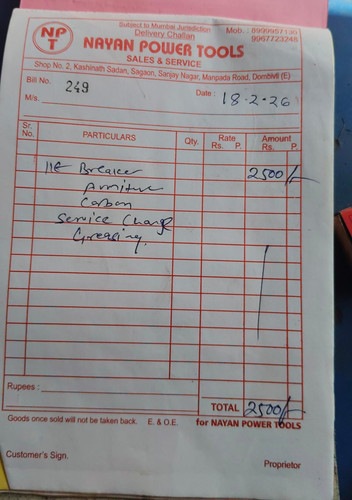 Subject to Mumbai Jurisdiction
Delivery Challan
Mob. : 8999957135
9967723348
NPT
NAYAN POWER TOOLS
SALES & SERVICE
Shop No. 2, Kashinath Sadan, Sagaon, Sanjay Nagar, Manpada Road, Dombivli (E)
Bill No. 249
Date : 18-2-26
M/s.
Sr. No. PARTICULARS Qty. Rate Rs. P. Amount Rs. P.
11E Breaker 2500/-
Armiture
Carbon
Service Charge
Greasing.
Rupees :
TOTAL 2500/-
Goods once sold will not be taken back. E. & O.E. for NAYAN POWER TOOLS
Customer's Sign.
Proprietor